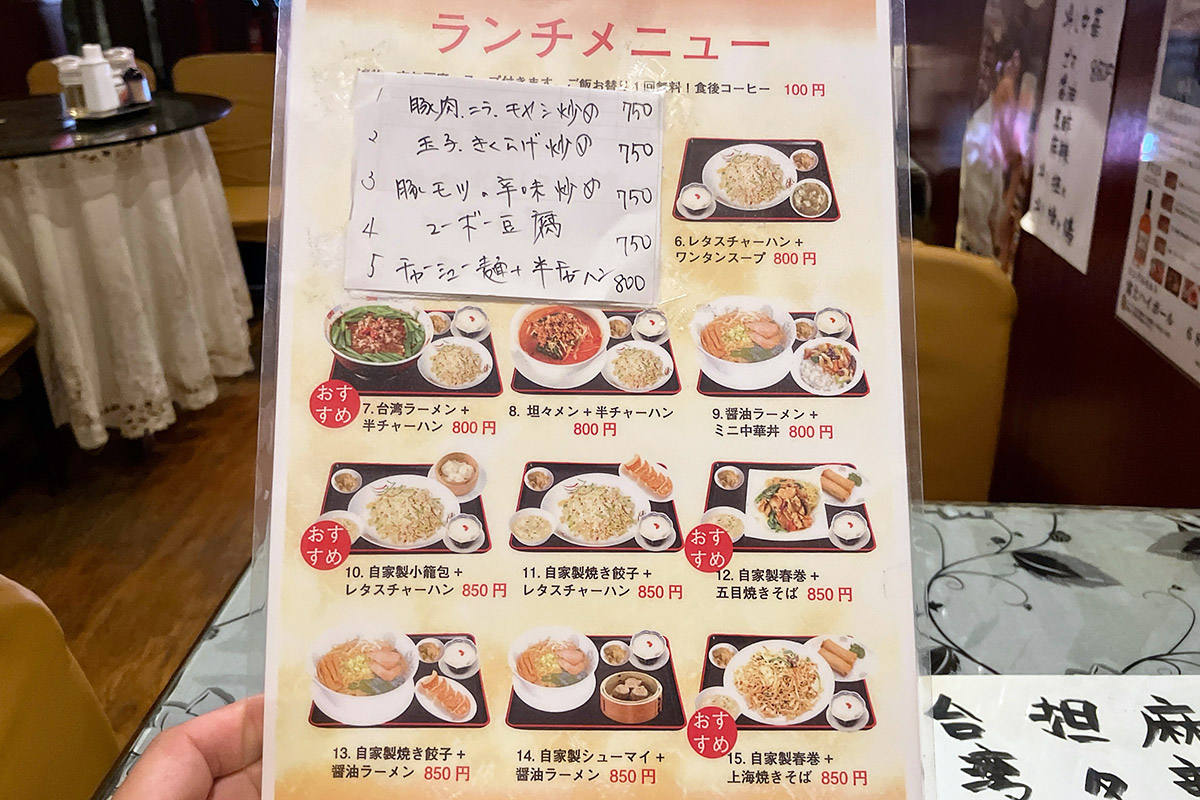 ランチメニュー
ご飯お替り1回無料！食後コーヒー 100円
1 豚肉、ニラ、モヤシ炒め 750
2 玉子、きくらげ炒め 750
3 豚モツの辛味炒め 750
4 マーボー豆腐 750
5 チャーシュー麺+半チャーハン 800
6.レタスチャーハン+
ワンタンスープ 800円
おす
すめ
7.台湾ラーメン+
半チャーハン 800円
8. 坦々メン+半チャーハン
800円
9.醤油ラーメン+
ミニ中華丼 800円
おす
すめ
10. 自家製小籠包+
レタスチャーハン 850円
11. 自家製焼き餃子+
レタスチャーハン 850円
おす
すめ
12. 自家製春巻+
五目焼きそば 850円
13. 自家製焼き餃子+
醤油ラーメン 850円
14. 自家製シューマイ+
醤油ラーメン 850円
おす
すめ
15. 自家製春巻+
上海焼きそば 850円
台 坦 麻
湾